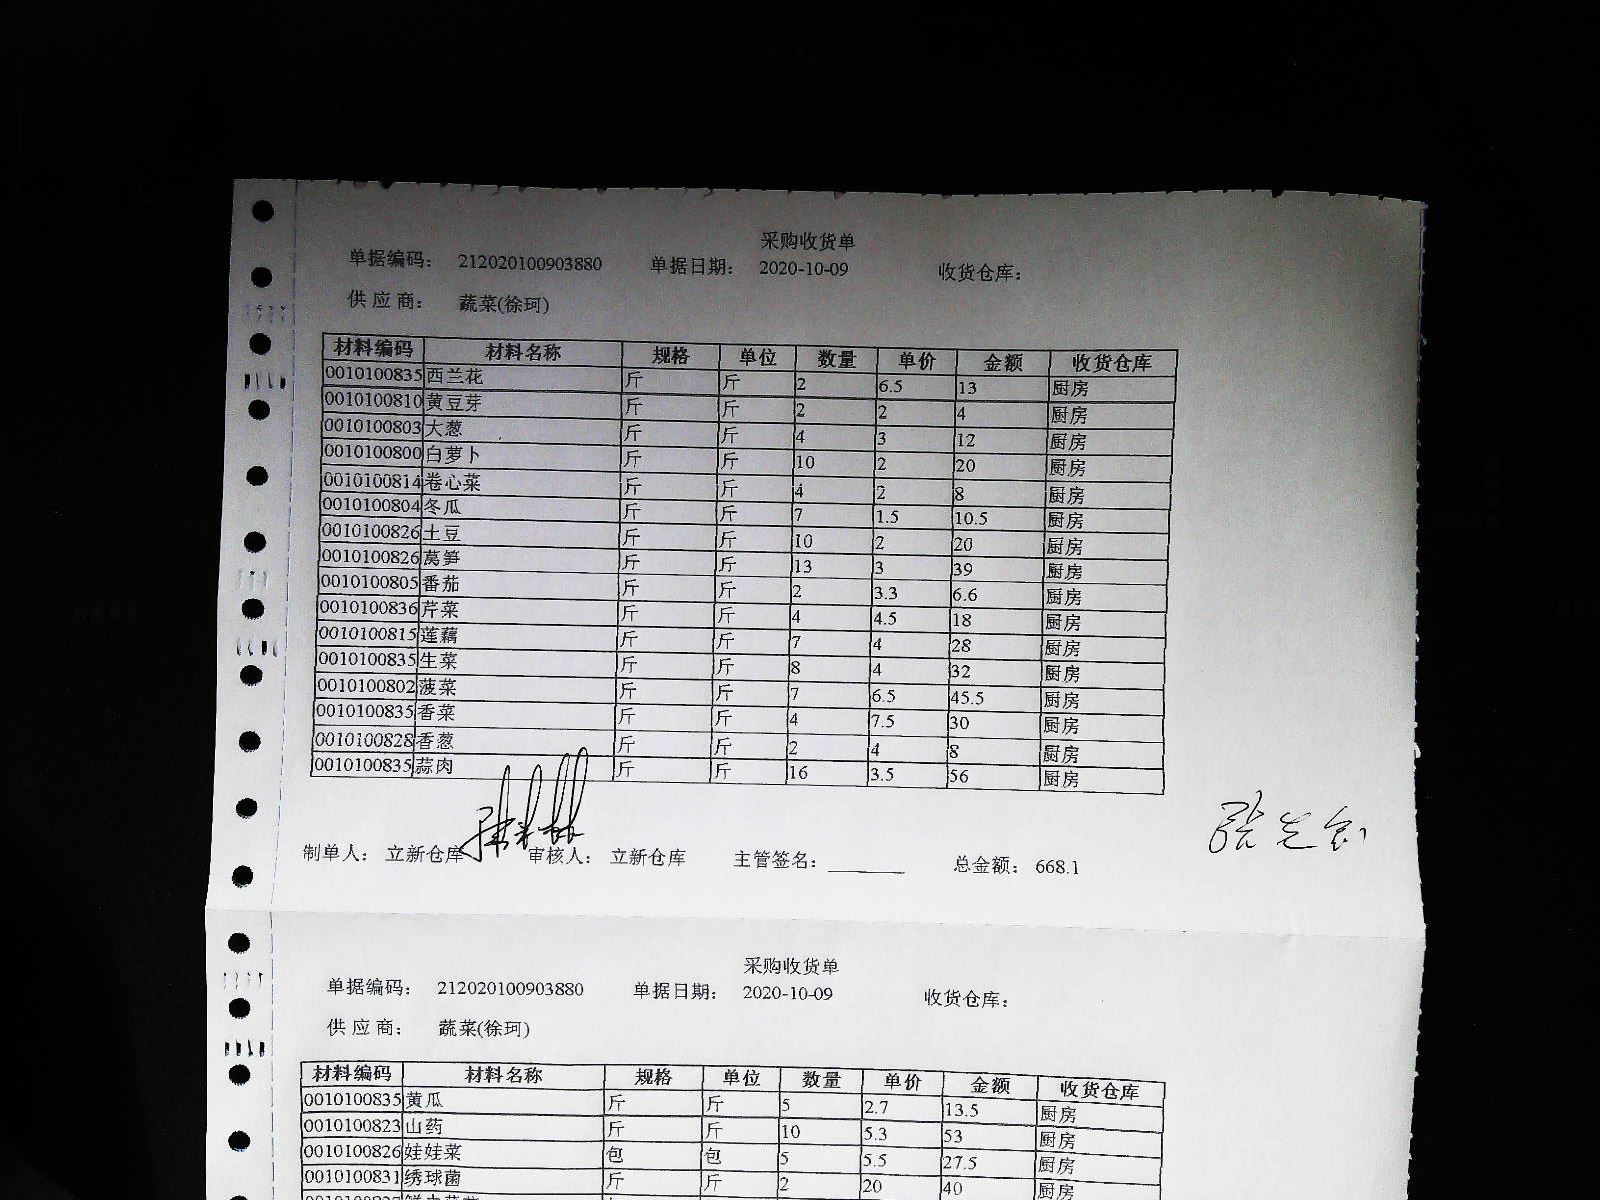 采购收货单
单据编码: 212020100903880 单据日期: 2020-10-09 收货仓库:
供应商: 蔬菜(徐珂)
材料编码 材料名称 规格 单位 数量 单价 金额 收货仓库
0010100835 西兰花 斤 斤 2 6.5 13 厨房
0010100810 黄豆芽 斤 斤 2 2 4 厨房
0010100803 大葱 斤 斤 4 3 12 厨房
0010100800 白萝卜 斤 斤 10 2 20 厨房
0010100814 卷心菜 斤 斤 4 2 8 厨房
0010100804 冬瓜 斤 斤 7 1.5 10.5 厨房
0010100826 土豆 斤 斤 10 2 20 厨房
0010100826 莴笋 斤 斤 13 3 39 厨房
0010100805 番茄 斤 斤 2 3.3 6.6 厨房
0010100836 芹菜 斤 斤 4 4.5 18 厨房
0010100815 莲藕 斤 斤 7 4 28 厨房
0010100835 生菜 斤 斤 8 4 32 厨房
0010100802 菠菜 斤 斤 7 6.5 45.5 厨房
0010100835 香菜 斤 斤 4 7.5 30 厨房
0010100828 香葱 斤 斤 2 4 8 厨房
0010100835 蒜肉 斤 斤 16 3.5 56 厨房
制单人: 立新仓库 审核人: 立新仓库 主管签名: 总金额: 668.1
采购收货单
单据编码: 212020100903880 单据日期: 2020-10-09 收货仓库:
供应商: 蔬菜(徐珂)
材料编码 材料名称 规格 单位 数量 单价 金额 收货仓库
0010100835 黄瓜 斤 斤 5 2.7 13.5 厨房
0010100823 山药 斤 斤 10 5.3 53 厨房
0010100826 娃娃菜 包 包 5 5.5 27.5 厨房
0010100831 绣球菌 斤 斤 2 20 40 厨房